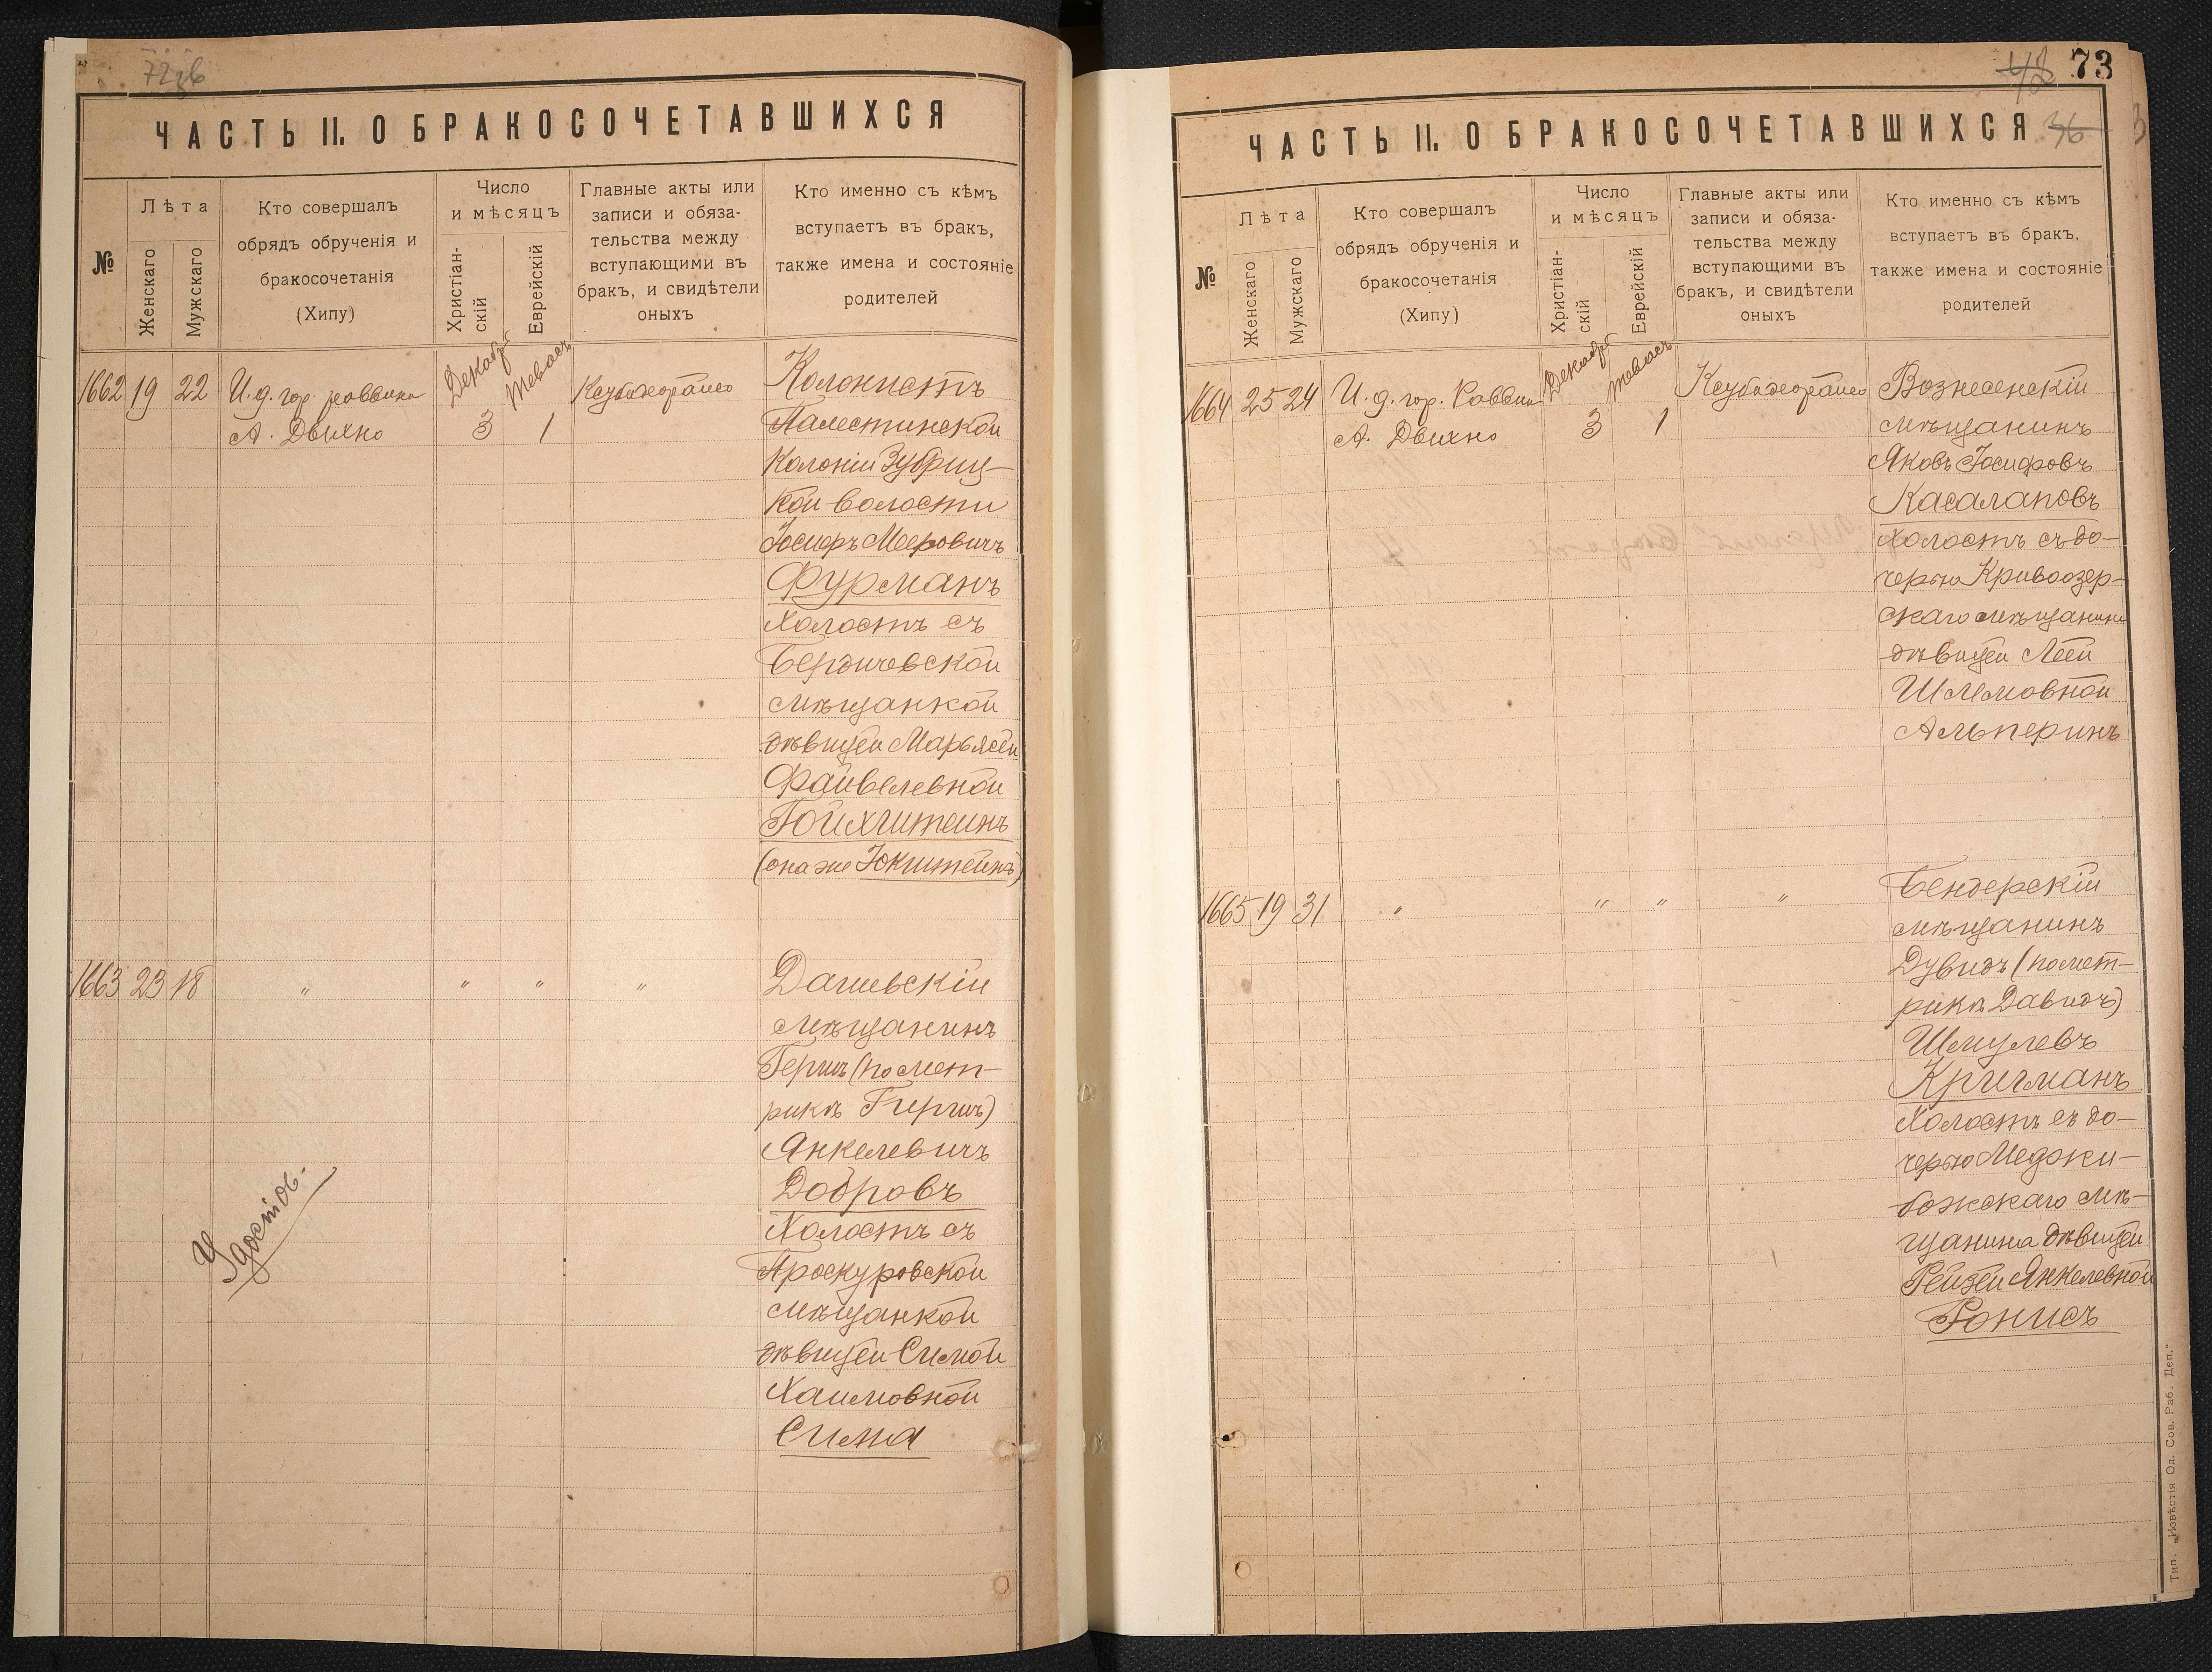 72зв
ЧАСТЬ II. О БРАКОСОЧЕТАВШИХСЯ
№
Лѣта
Женскаго
Мужскаго
Кто совершалъ
обрядъ обрученія и
бракосочетанія
(Хипу)
Число
и мѣсяцъ
Христіан-
скій
Еврейскій
Главные акты или
записи и обяза-
тельства между
вступающими въ
бракъ, и свидѣтели
оныхъ
Кто именно съ кѣмъ
вступаетъ въ бракъ,
также имена и состояніе
родителей
1662 19 22 И. д. гор. раввина
А. Двихно
Декабр
3
Тевесъ
1
Колонистъ
Палестинской
Колоніи
кой волости
Іосифъ Мееровичъ
Фурманъ
Холостъ съ
Бердичевской
мѣщанкой
дѣвицей Марьясей
Файвелевной
Гойхштейнъ
(она же Юкштейнъ)
1663 23 18 " " " "
Дашевскій
мѣщанинъ
Гершъ (по мет-
рикѣ Гиршъ)
Янкелевичъ
Добровъ
Холостъ съ
Проскуровской
мѣщанкой
дѣвицей Симой
Хаимовной
Сима
Удостов.
73
36
ЧАСТЬ II. О БРАКОСОЧЕТАВШИХСЯ
№
Лѣта
Женскаго
Мужскаго
Кто совершалъ
обрядъ обрученія и
бракосочетанія
(Хипу)
Число
и мѣсяцъ
Христіан-
скій
Еврейскій
Главные акты или
записи и обяза-
тельства между
вступающими въ
бракъ, и свидѣтели
оныхъ
Кто именно съ кѣмъ
вступаетъ въ бракъ,
также имена и состояніе
родителей
1664 25 24 И. д. гор. Раввин
А. Двихно
Декабр
3
Тевесъ
1
Вознесенскій
мѣщанинъ
Яковъ Іосифовъ
Касалаповъ
Холостъ съ до-
черью Кривоозер-
скаго мѣщанина
дѣвицей Леей
Шлемовной
Альперинъ
1665 19 31 " " " "
Бендерскій
мѣщанинъ
Дувидъ (по мет-
рикѣ Давидъ)
Шмулевъ
Кричманъ
Холостъ съ до-
черью Меджи-
божскаго мѣ-
щанина дѣвицей
Рейзей Янкелевной
Ронисъ
Тип. „Извѣстія Од. Сов. Раб. Деп."